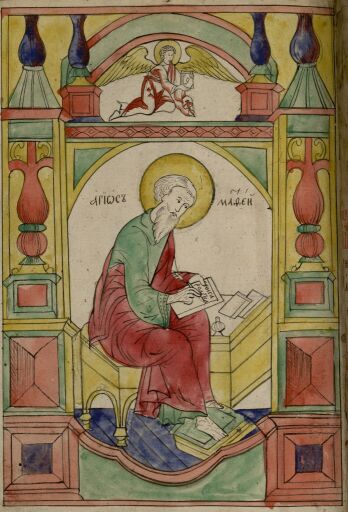 АГІѠСЪ МАѲЕЙ